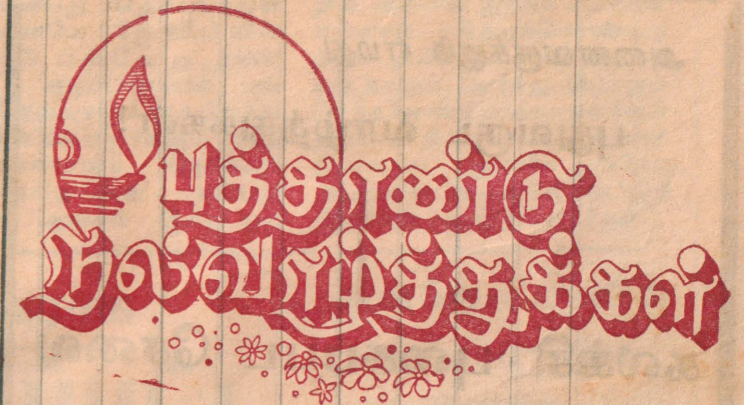 புத்தாண்டு
நல்வாழ்த்துக்கள்